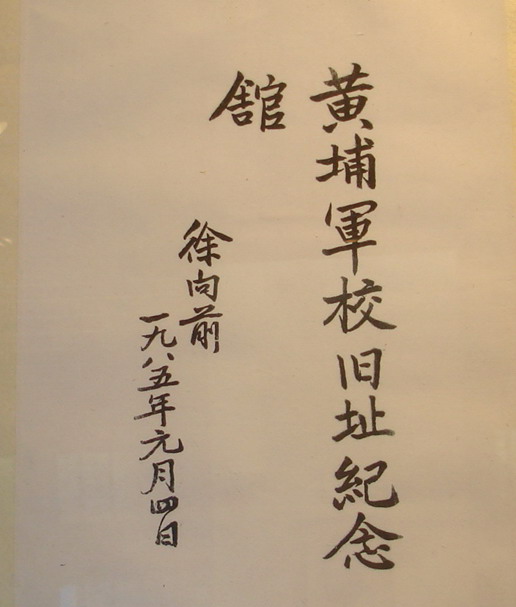 黄埔軍校旧址紀念
舘
徐向前
一九八五年元月四日